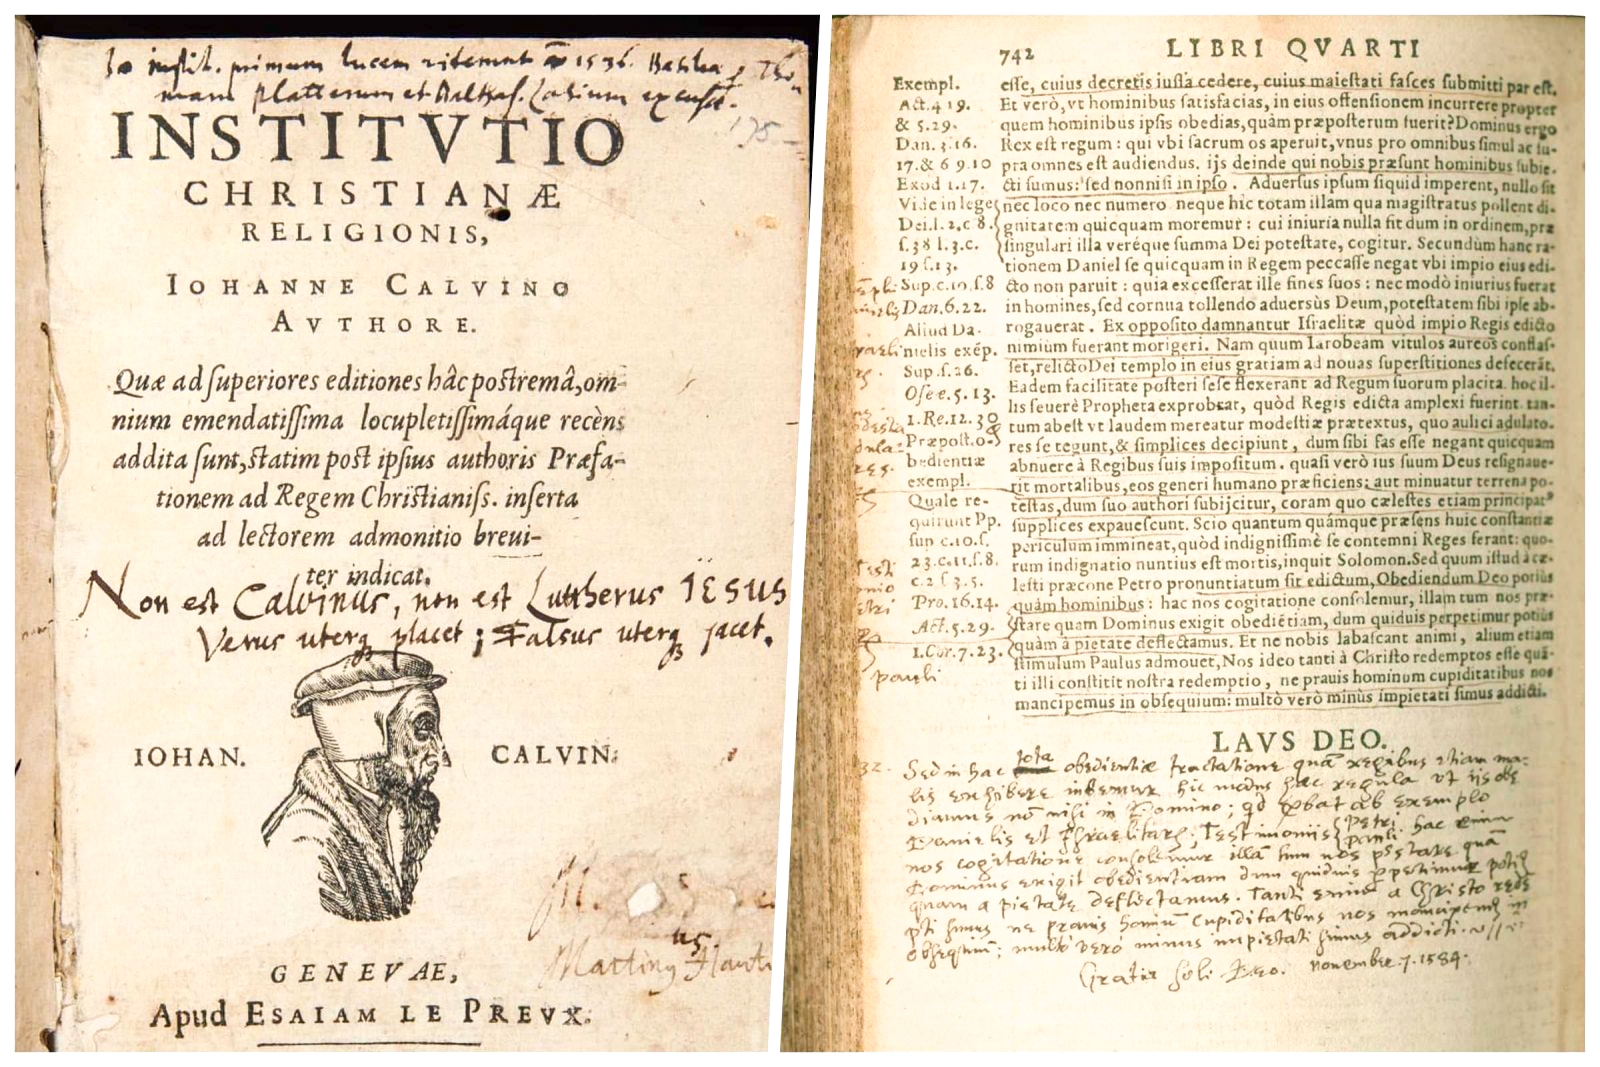 Hę instit. primum lucem viderunt aō 1536. Basileæ p Tho-
mam Platterum et Balthas. Lasium excusæ.
175-
INSTITVTIO
CHRISTIANÆ
RELIGIONIS,
IOHANNE CALVINO
AVTHORE.
Quæ ad superiores editiones hâc postremâ, om-
nium emendatissima locupletissimáque recèns
addita sunt, statim post ipsius authoris Præfa-
tionem ad Regem Christianiss. inserta
ad lectorem admonitio brevi-
ter indicat.
Non est Calvinus, non est Lutherus IESUS
Verus uterq placet ; Falsus uterq jacet.
IOHAN. CALVIN.
M.
Martiny
GENEVAE,
Apud ESAIAM LE PREVX.
742 LIBRI QVARTI
Exempl.
Act. 4 19.
& 5. 29.
Dan. 3. 16.
17. & 6 9. 10
Exod 1. 17.
Vide in lege
Dei. l. 2. c 8.
s. 38 l. 3. c.
19 s. 13.
Sup. c. 10. s. 8
Dan. 6. 22.
Aliud Da-
nielis exēp.
Sup. s. 26.
Osee. 5. 13.
1. Re. 12. 30
Præpost. o-
bedientiæ
exempl.
Quale re-
quirunt Pp.
sup c. 10. s.
23. c. 11. s. 8.
c. 2 s 3. 5.
Pro. 16. 14.
Act. 5. 29.
1. Cor. 7. 23.
pauli
esse, cuius decretis iussa cedere, cuius maiestati fasces submitti par est.
Et verò, vt hominibus satisfacias, in eius offensionem incurrere propter
quem hominibus ipsis obedias, quàm præposterum fuerit? Dominus ergo
Rex est regum : qui vbi sacrum os aperuit, vnus pro omnibus simul ac su-
pra omnes est audiendus. ijs deinde qui nobis præsunt hominibus subie-
cti sumus: sed nonnisi in ipso . Adversus ipsum siquid imperent, nullo sit
nec loco nec numero neque hic totam illam qua magistratus pollent di-
gnitatem quicquam moremur : cui iniuria nulla fit dum in ordinem, præ
singulari illa veréque summa Dei potestate, cogitur. Secundùm hanc ra-
tionem Daniel se quicquam in Regem peccasse negat vbi impio eius edi-
cto non paruit : quia excesserat ille fines suos : nec modò iniurius fuerat
in homines, sed cornua tollendo adversùs Deum, potestatem sibi ipse ab-
rogauerat . Ex opposito damnantur Israelitæ quòd impio Regis edicto
nimium fuerant morigeri. Nam quum Iarobeam vitulos aureos conflas-
set, relicto Dei templo in eius gratiam ad nouas superstitiones defecerāt.
Eadem facilitate posteri sese flexerant ad Regum suorum placita. hoc il-
lis seuerè Propheta exprobrat, quòd Regis edicta amplexi fuerint. tan-
tum abest vt laudem mereatur modestiæ prætextus, quo aulici adulato-
res se tegunt, & simplices decipiunt , dum sibi fas esse negant quicquam
abnuere à Regibus suis impositum. quasi verò ius suum Deus resignaue-
rit mortalibus, eos generi humano præficiens: aut minuatur terrena po-
testas, dum suo authori subijcitur, coram quo cælestes etiam principat⁹
supplices expauescunt. Scio quantum quámque præsens huic constantiæ
periculum immineat, quòd indignissimè se contemni Reges ferant: quo-
rum indignatio nuntius est mortis, inquit Solomon. Sed quum istud à cæ-
lesti præcone Petro pronuntiatum sit edictum, Obediendum Deo potius
quàm hominibus : hac nos cogitatione consolemur, illam tum nos præ-
stare quam Dominus exigit obediētiam, dum quiduis perpetimur potius
quàm à pietate deflectamus. Et ne nobis labascant animi , alium etiam
stimulum Paulus admouet, Nos ideo tanti à Christo redemptos esse quā-
ti illi constitit nostra redemptio , ne prauis hominum cupiditatibus nos
mancipemus in obsequium: multò verò minùs impietati simus addicti.
LAVS DEO.
32. Sed in hac tota obedientiæ tractatione quā regibus etiam ma-
lis exhibere iubemur hic modus hac regula ut ijs obe
diamus nō nisi in Domino ; qd pbat ab exemplo
Danielis et Israelitarū; Testimoniis Petri pauli. hac enim
nos cogitatione consolemur illā tum nos præstare quā
Dominus exigit obedientiam dum quiduis perpetimur poti⁹
quam a pietate deflectamus. Tanti enim a Christo redē
pti sumus ne prauis hominū cupiditatibus nos mancipemus in
obsequium; multo vero minus impietati simus addicti.
Gratia Soli Deo. november. 7. 1584.